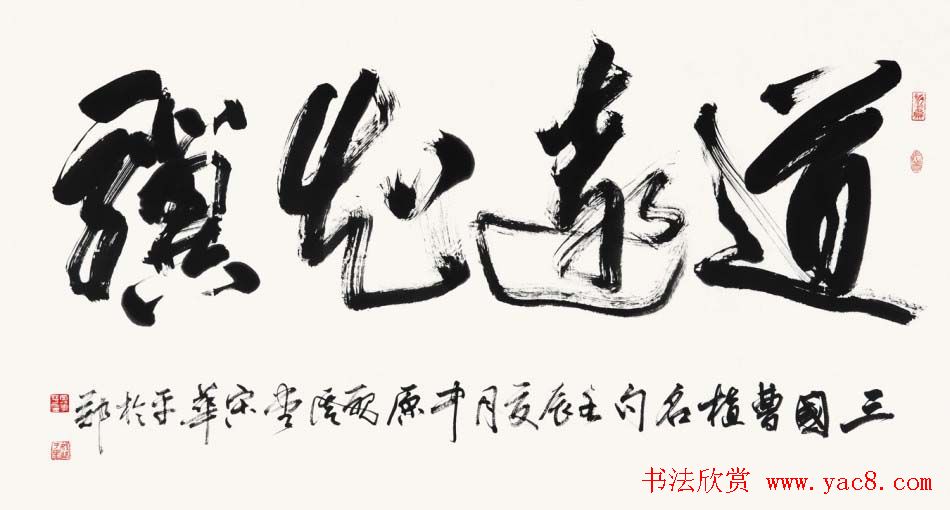 道遠知驥
三國曹植名句壬辰夏月中原堂宋華平於鄭
书法欣赏 www.yac8.com